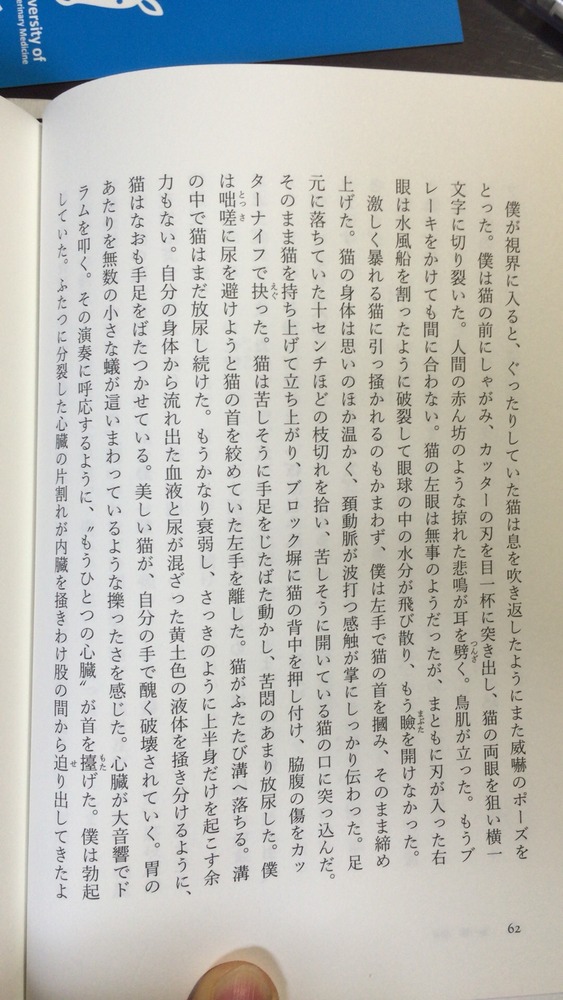 iversity of
terinary Medicine
僕が視界に入ると、ぐったりしていた猫は息を吹き返したようにまた威嚇のポーズを
とった。僕は猫の前にしゃがみ、カッターの刃を目一杯に突き出し、猫の両眼を狙い横一
文字に切り裂いた。人間の赤ん坊のような掠れた悲鳴が耳を劈く。鳥肌が立った。もうブ
つんざ
レーキをかけても間に合わない。猫の左眼は無事のようだったが、まともに刃が入った右
眼は水風船を割ったように破裂して眼球の中の水分が飛び散り、もう瞼を開けなかった。
まぶた
激しく暴れる猫に引っ掻かれるのもかまわず、僕は左手で猫の首を摑み、そのまま締め
上げた。猫の身体は思いのほか温かく、頚動脈が波打つ感触が掌にしっかり伝わった。足
元に落ちていた十センチほどの枝切れを拾い、苦しそうに開いている猫の口に突っ込んだ。
そのまま猫を持ち上げて立ち上がり、ブロック塀に猫の背中を押し付け、脇腹の傷をカッ
ターナイフで抉った。猫は苦しそうに手足をじたばた動かし、苦悶のあまり放尿した。僕
えぐ
は咄嗟に尿を避けようと猫の首を絞めていた左手を離した。猫がふたたび溝へ落ちる。溝
とっさ
の中で猫はまだ放尿し続けた。もうかなり衰弱し、さっきのように上半身だけを起こす余
力もない。自分の身体から流れ出た血液と尿が混ざった黄土色の液体を掻き分けるように、
猫はなおも手足をばたつかせている。美しい猫が、自分の手で醜く破壊されていく。胃の
あたりを無数の小さな蟻が這いまわっているような擽ったさを感じた。心臓が大音響でド
ラムを叩く。その演奏に呼応するように、〝もうひとつの心臓〟が首を擡げた。僕は勃起
もた
していた。ふたつに分裂した心臓の片割れが内臓を掻きわけ股の間から迫り出してきたよ
せ
62